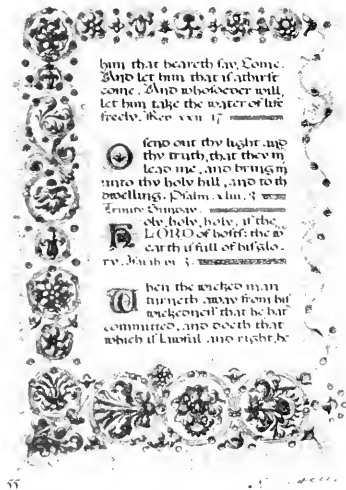 him that heareth say, Come.
And let him that is athirst
come. And whosoever will,
let him take the water of life
freely. Rev xxii 17
O send out thy light and
thy truth, that they m
lead me, and bring m
unto thy holy hill, and to th
dwelling. Psalm. xliii. 3
Trinity Sunday.
Holy, holy, holy, is the
LORD of hosts: the w
earth is full of his glo-
ry. Isaiah vi 3.
When the wicked man
turneth away from his
wickedness that he hat
committed, and doeth that
which is lawful and right, he
55